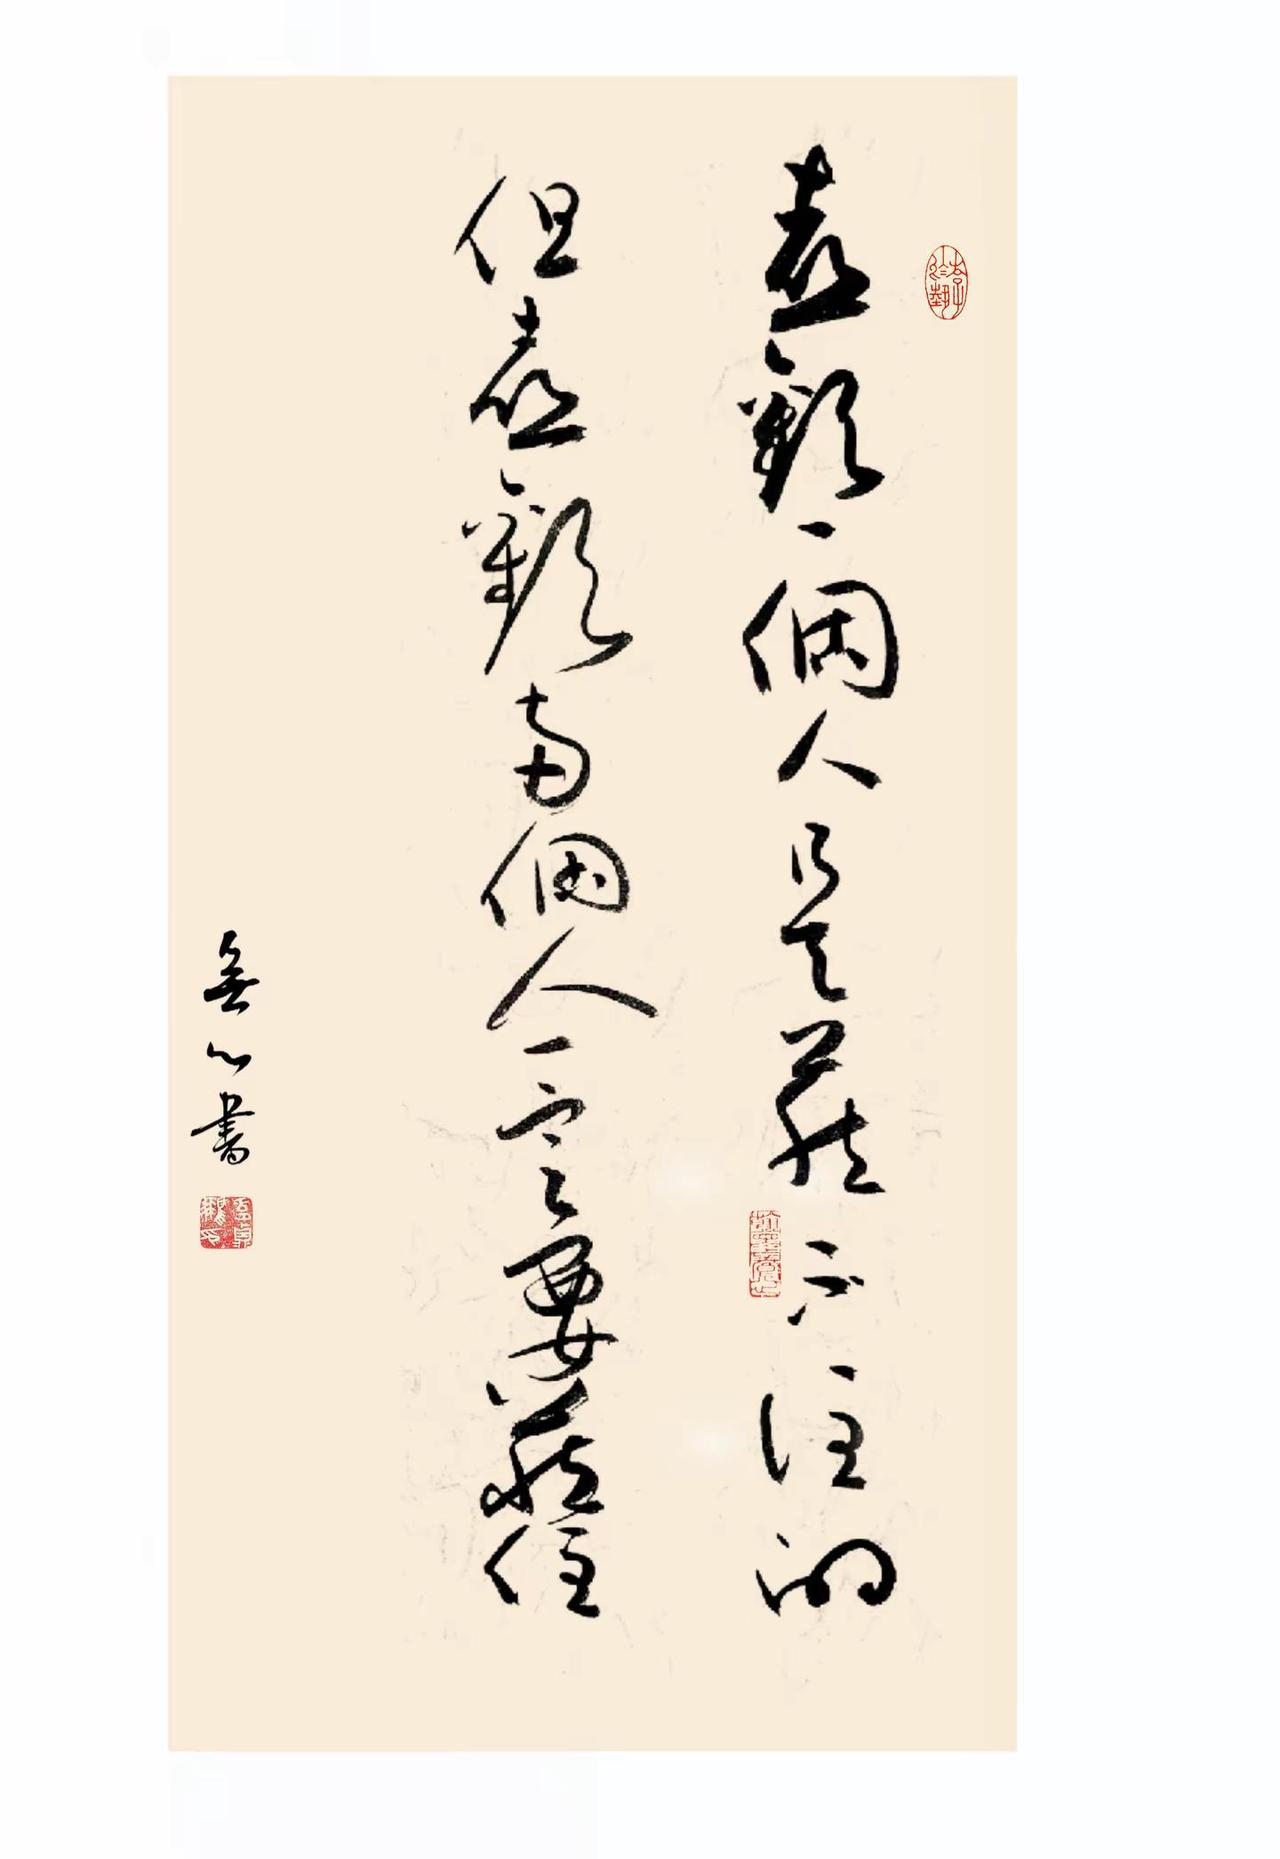 喜歡一個人是藏不住的
但喜歡兩個人一定要藏住
無心書